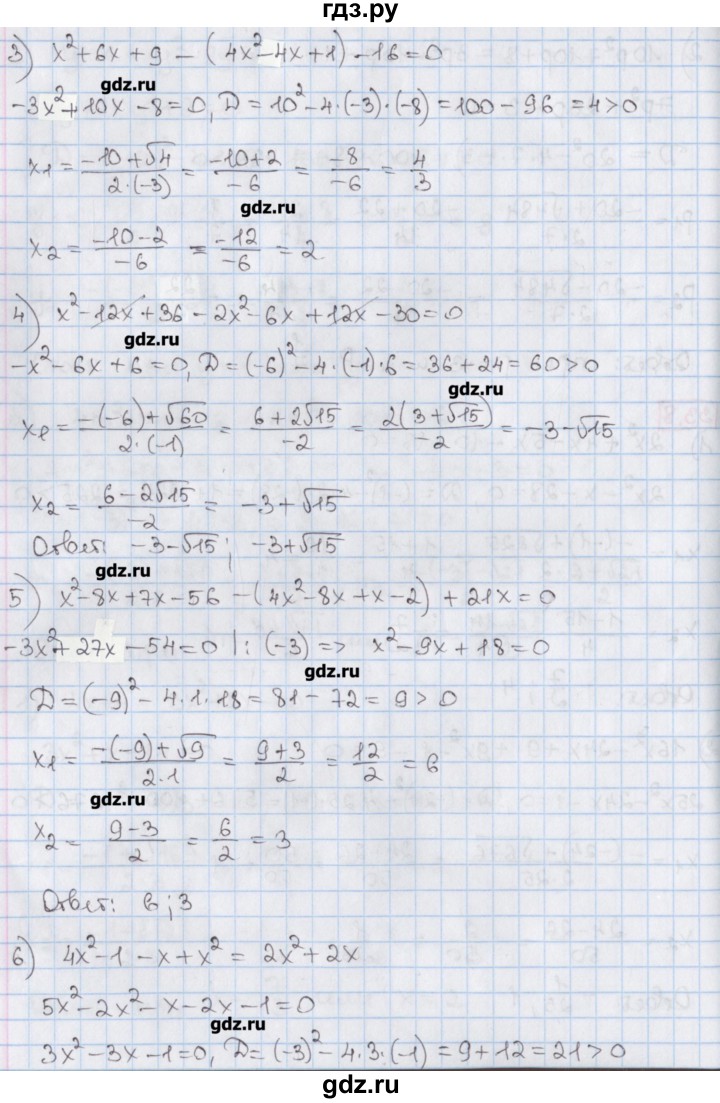 гдз.ру
3) x²+6x+9 - (4x²-4x+1)-16=0
gdz.ru
-3x²+10x-8=0, D=10²-4·(-3)·(-8)=100-96=4>0
x1 = (-10+√4)/(2·(-3)) = (-10+2)/(-6) = (-8)/(-6) = 4/3
gdz.ru
x2 = (-10-2)/(-6) = (-12)/(-6) = 2
4) x²-12x+36-2x²-6x+12x-30=0
gdz.ru
-x²-6x+6=0, D=(-6)²-4·(-1)·6=36+24=60>0
gdz.ru
x1 = (-(-6)+√60)/(2·(-1)) = (6+2√15)/(-2) = (2(3+√15))/(-2) = -3-√15
x2 = (6-2√15)/(-2) = -3+√15
Ответ: -3-√15; -3+√15
gdz.ru
5) x²-8x+7x-56-(4x²-8x+x-2)+21x=0
-3x²+27x-54=0 |:(-3) => x²-9x+18=0
gdz.ru
D=(-9)²-4·1·18=81-72=9>0
x1 = (-(-9)+√9)/(2·1) = (9+3)/2 = 12/2 = 6
gdz.ru
x2 = (9-3)/2 = 6/2 = 3
Ответ: 6; 3
6) 4x²-1-x+x²=2x²+2x
5x²-2x²-x-2x-1=0
gdz.ru
3x²-3x-1=0, D=(-3)²-4·3·(-1)=9+12=21>0
gdz.ru